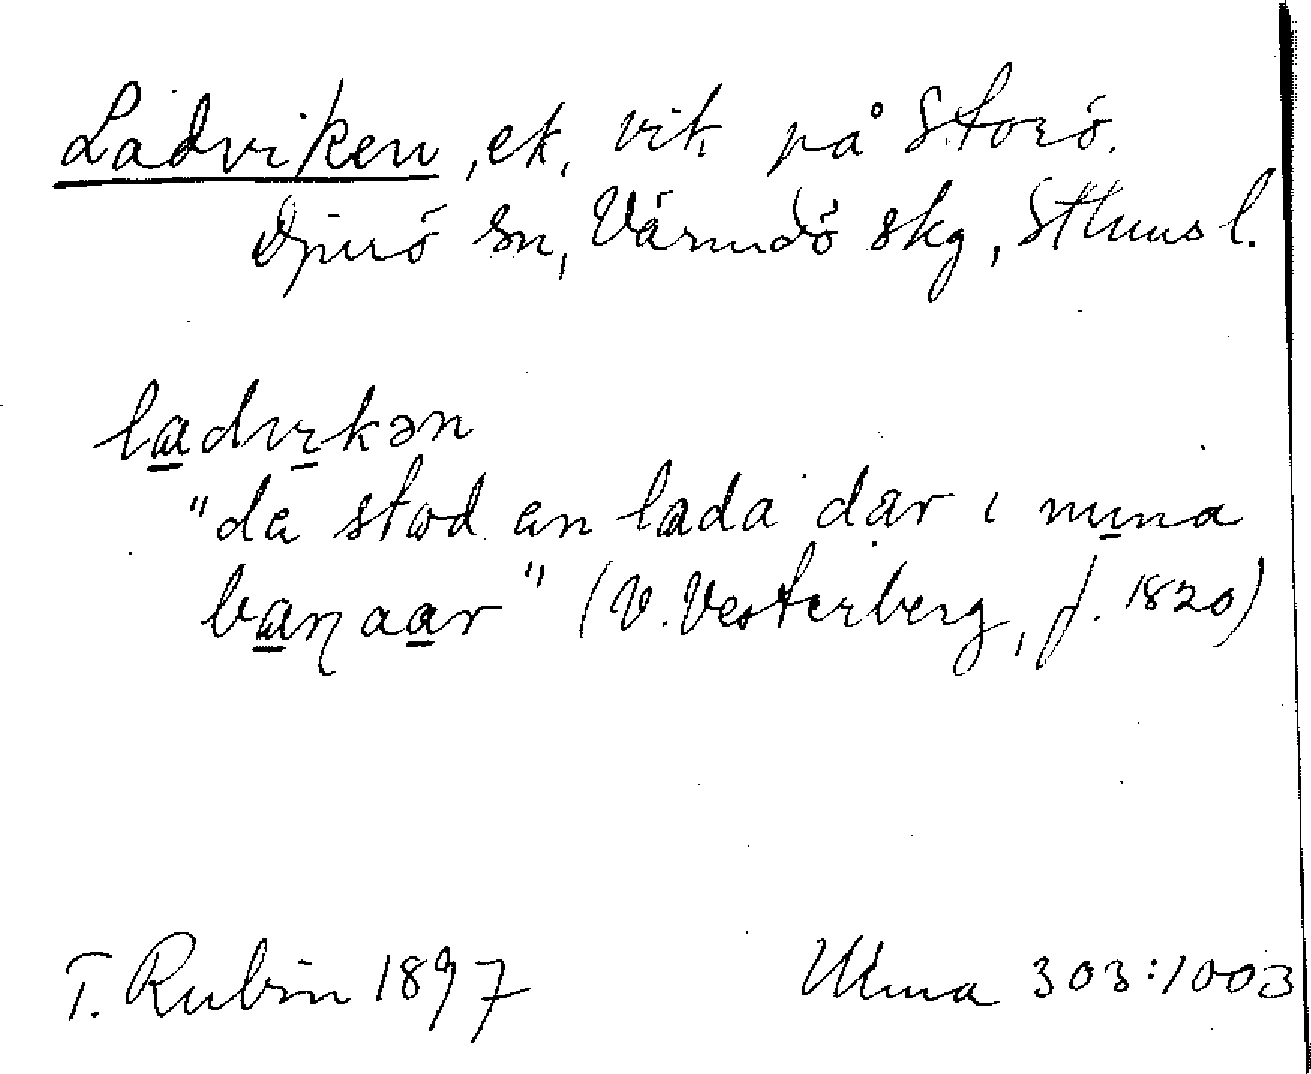 Ladviken, ek. vik på Storö.
Djurö sn, Värmdö skg, Sthms l.
ladvikən
"da stod en lada dar i mina
baŋaar" (V. Vesterberg, f. 1820)
T. Rubin 1897 Ulma 303:1003